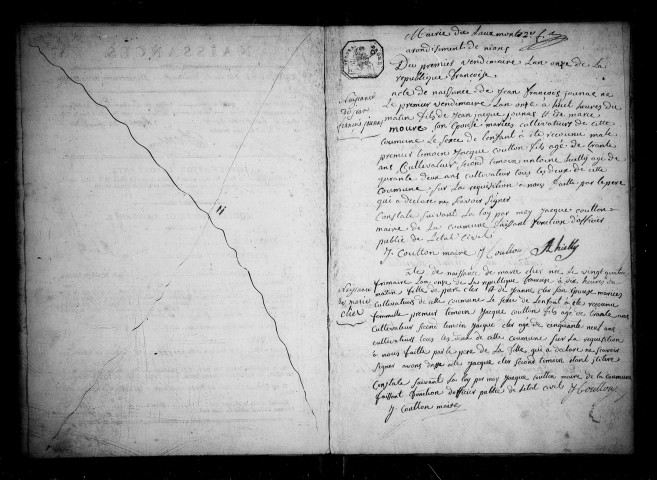 NAISSANCES
Mairie de
arondisment de nions
Du premier vendemiaire Lan onze de La
republique francoise
Naissance
de jean
françois
note de naissance de jean francois
Le premier vendemiaire Lan onze à huit heures du
matin fils de jean jacque et de marie
moure son epouse mariées cultivateurs de cette
commune Le sexe de lenfant à ete reconnu male
premier temoin jacque coullon fils agé de trante
ans Cultivateur, second temoin antoine hielly agé de
quarante deux ans cultivateur tous les deux de cette
commune sur La requisition à nous faitte par le pere
qui à declare ne scavoir signer
Constate suivant La loy par moy jacque coullon
maire de La commune faisant fonction dofficier
public de Letat civil
J Coullon maire J Coullon Ahielly
Naissance
de marie
cler
de naissance de marie cler nee Le vingt quatre
frimaire Lan onze de La republique francoise à dix heures du
matin fille de piere cler et de son epouse mariées
cultivateurs de cette commune Le sexe de Lenfant à ete reconnu
femmelle premier temoin jacque coullon fils agé de trante ans
cultivateur second temoin jacque cler agé de cinquante neuf ans
cultivateur tous les deux de cette commune sur La requisition
à nous faitte par le pere de La fille, qui à declare ne scavoir
signer jacque cler second temoin
Constate suivant La loy par moy jacque coullon maire de la commune
faisant fonction dofficier public de Letat civil J Coullon
J Coullon maire